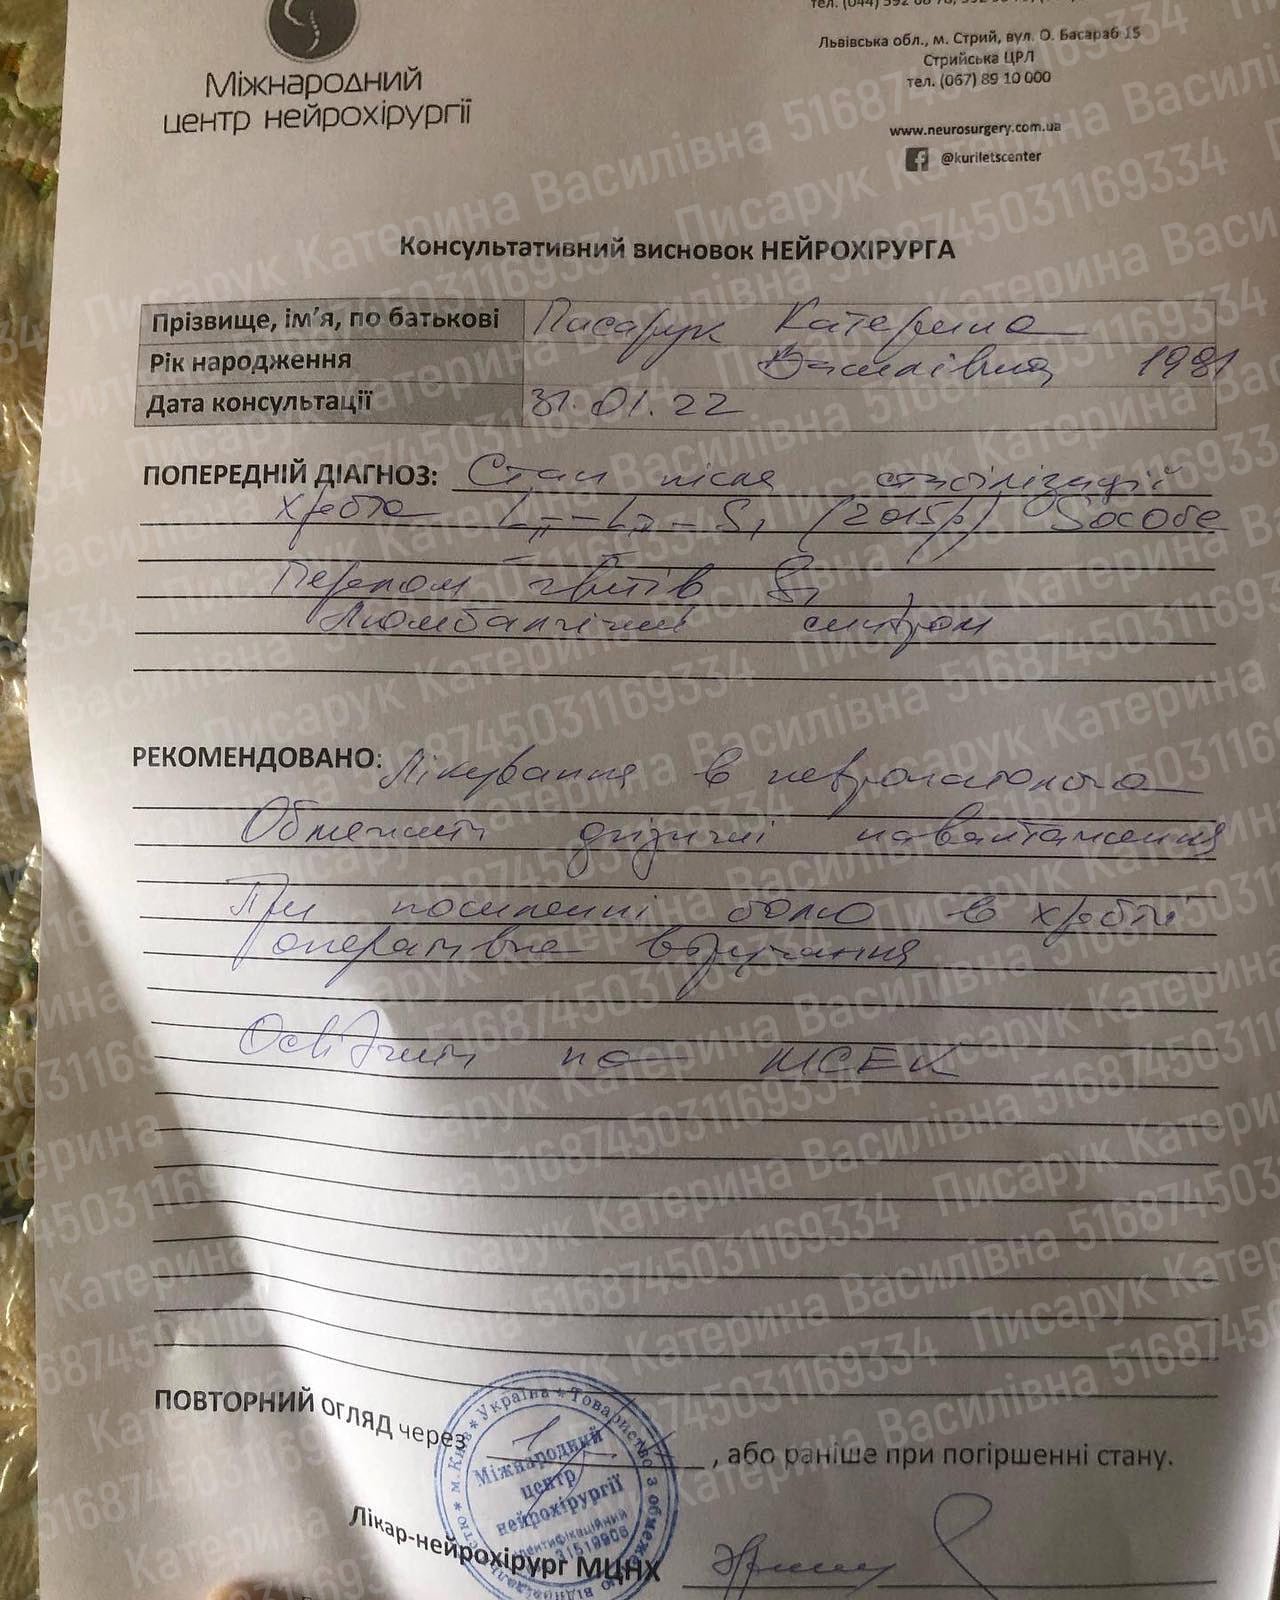 Міжнародний
центр нейрохірургії
Львівська обл., м. Стрий, вул. О. Басараб 15
Стрийська ЦРЛ
тел. (067) 89 10 000
www.neurosurgery.com.ua
@kuriletscenter
Консультативний висновок НЕЙРОХІРУРГА
Прізвище, ім'я, по батькові Писарук Катерина
Рік народження Василівна 1981
Дата консультації 31.01.22
ПОПЕРЕДНІЙ ДІАГНОЗ: Стан після стабілізації
хребта S1 (2015р)
Перелом гвинтів S1
Люмбалгічний синдром
РЕКОМЕНДОВАНО: Лікування в невропатолога
Обмежити фізичні навантаження
При посиленні болю в хребті
оперативне втручання
на МСЕК
ПОВТОРНИЙ ОГЛЯД через 1 , або раніше при погіршенні стану.
Україна * Товариство з обмеженою * м. Київ *
Міжнародний
центр
нейрохірургії
Ідентифікаційний
31519906
Лікар-нейрохірург МЦНХ
Писарук Катерина Василівна 5168745031169334